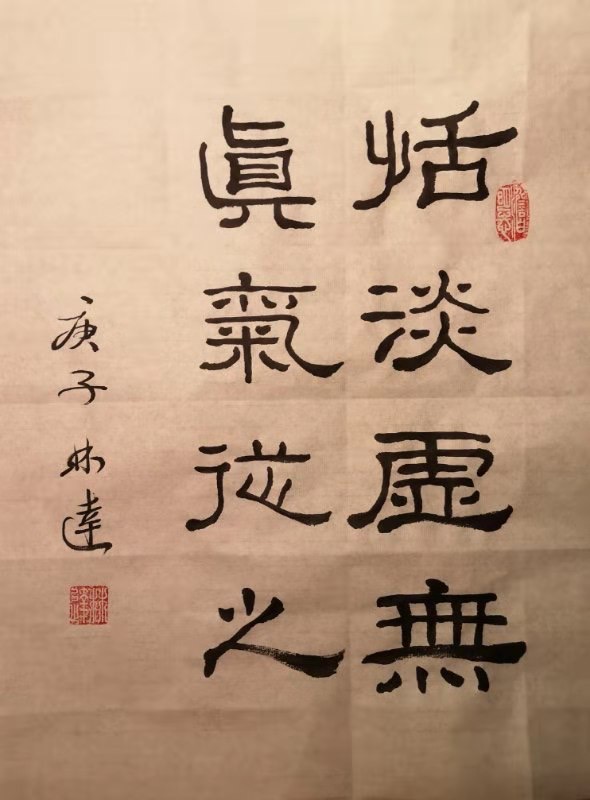 恬淡虛無
真氣從之
庚子林達